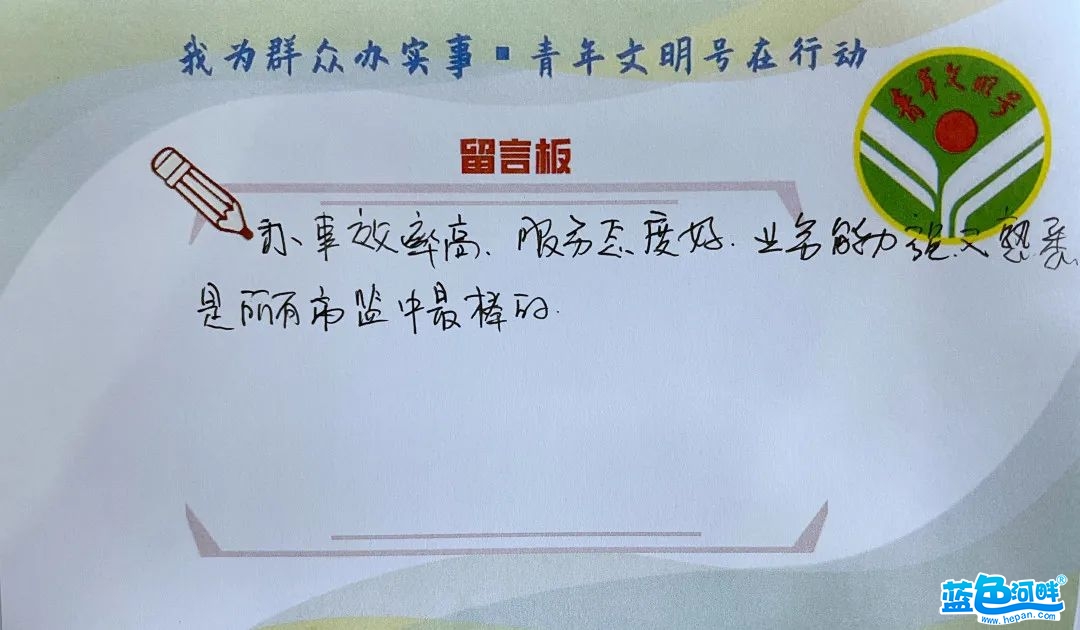 我为群众办实事·青年文明号在行动
青年文明号
留言板
办事效率高、服务态度好.业务能力强又熟悉
是所有市监中最棒的.
蓝色河畔®
www.hepan.com